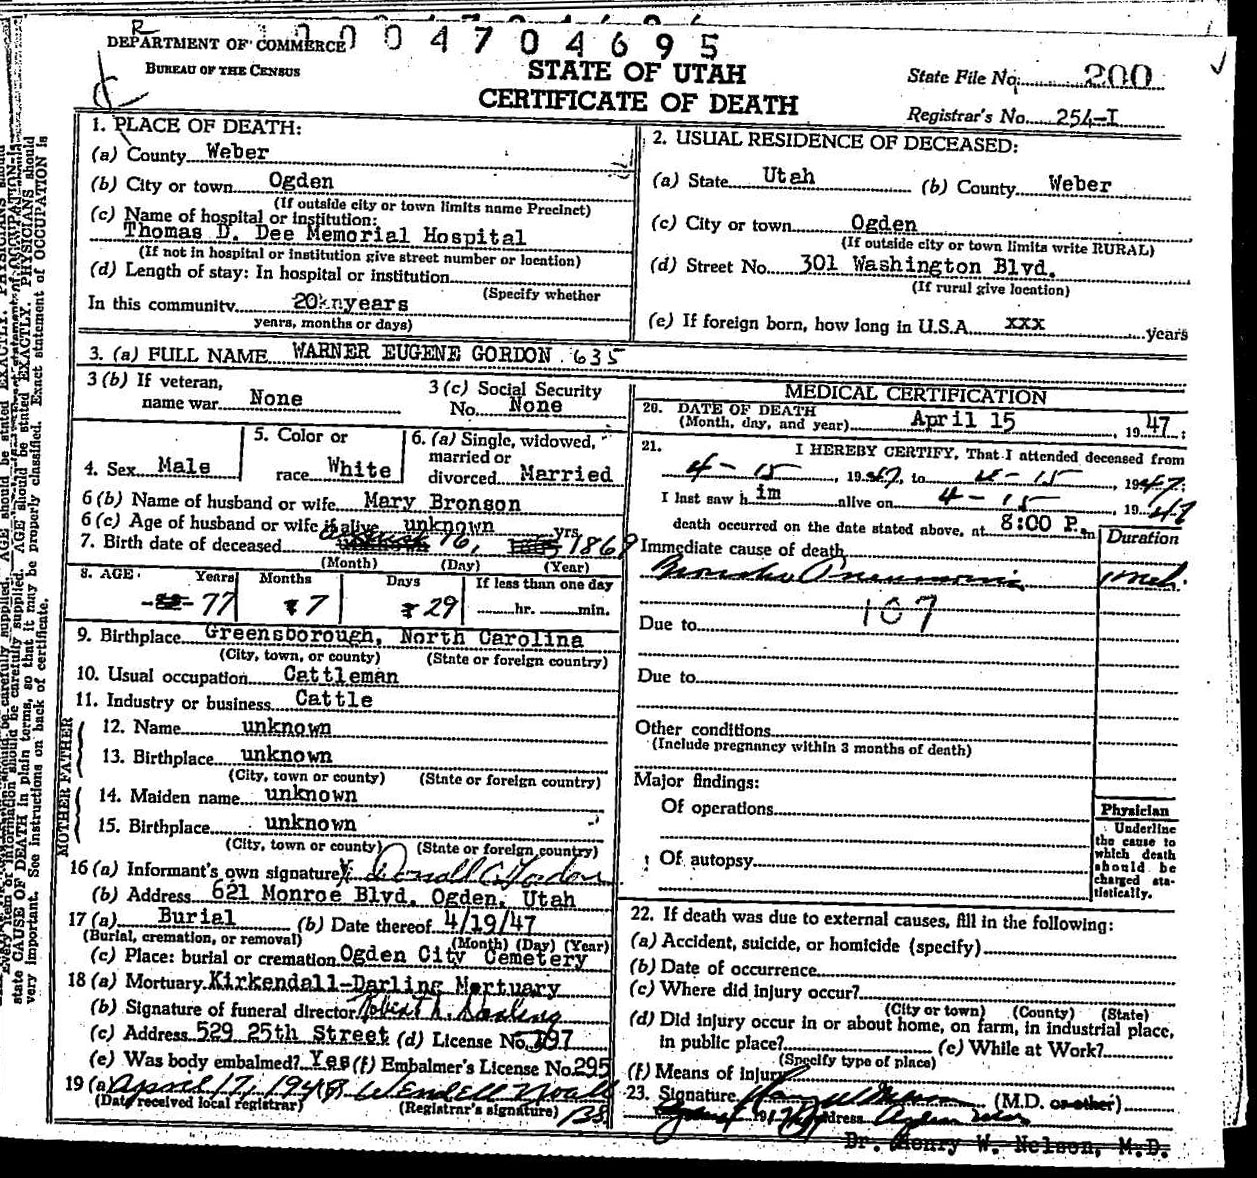 R
0004704695
DEPARTMENT OF COMMERCE
BUREAU OF THE CENSUS
STATE OF UTAH
CERTIFICATE OF DEATH
State File No. 200
Registrar's No. 254-I
1. PLACE OF DEATH:
(a) County Weber
(b) City or town Ogden
(If outside city or town limits name Precinct)
(c) Name of hospital or institution:
Thomas D. Dee Memorial Hospital
(If not in hospital or institution give street number or location)
(d) Length of stay: In hospital or institution
(Specify whether
In this community 20 years
years, months or days)
2. USUAL RESIDENCE OF DECEASED:
(a) State Utah (b) County Weber
(c) City or town Ogden
(If outside city or town limits write RURAL)
(d) Street No. 301 Washington Blvd.
(If rural give location)
(e) If foreign born, how long in U.S.A. xxx years
3. (a) FULL NAME WARNER EUGENE GORDON 635
3 (b) If veteran,
name war None
3 (c) Social Security
No. None
4. Sex Male
5. Color or
race White
6. (a) Single, widowed,
married or
divorced Married
6 (b) Name of husband or wife Mary Bronson
6 (c) Age of husband or wife if alive unknown yrs.
7. Birth date of deceased 16, 1869
(Month) (Day) (Year)
8. AGE Years Months Days If less than one day
77 7 29 hr. min.
9. Birthplace Greensborough, North Carolina
(City, town, or county) (State or foreign country)
10. Usual occupation Cattleman
11. Industry or business Cattle
FATHER
12. Name unknown
13. Birthplace unknown
(City, town or county) (State or foreign country)
MOTHER
14. Maiden name unknown
15. Birthplace unknown
(City, town or county) (State or foreign country)
16 (a) Informant's own signature Gordon
(b) Address 621 Monroe Blvd. Ogden, Utah
17 (a) Burial (b) Date thereof 4/19/47
(Burial, cremation, or removal) (Month) (Day) (Year)
(c) Place: burial or cremation Ogden City Cemetery
18 (a) Mortuary Kirkendall-Darling Mortuary
(b) Signature of funeral director Robert L. Darling
(c) Address 529 25th Street (d) License No. 197
(e) Was body embalmed? Yes (f) Embalmer's License No. 295
19 (a) April 17, 1947 Wendell Noall
(Date received local registrar) (Registrar's signature) BS.
MEDICAL CERTIFICATION
20. DATE OF DEATH
(Month, day, and year) April 15, 1947;
21. I HEREBY CERTIFY, That I attended deceased from
4-15, 1947, to 4-15, 1947;
I last saw him alive on 4-15, 1947
death occurred on the date stated above, at 8:00 P.m
Duration
Immediate cause of death
Broncho Pneumonia 1 wk.
107
Due to
Due to
Other conditions
(Include pregnancy within 3 months of death)
Major findings:
Of operations
Of autopsy
Physician
Underline
the cause to
which death
should be
charged sta-
tistically.
22. If death was due to external causes, fill in the following:
(a) Accident, suicide, or homicide (specify)
(b) Date of occurrence
(c) Where did injury occur?
(City or town) (County) (State)
(d) Did injury occur in or about home, on farm, in industrial place,
in public place? (e) While at Work?
(Specify type of place)
(f) Means of injury
23. Signature (M.D. or other)
Address Ogden
Dr. Henry W. Nelson, M.D.
state CAUSE OF DEATH in plain terms, so that it may be properly classified. Exact statement of OCCUPATION is
very important. See instructions on back of certificate.